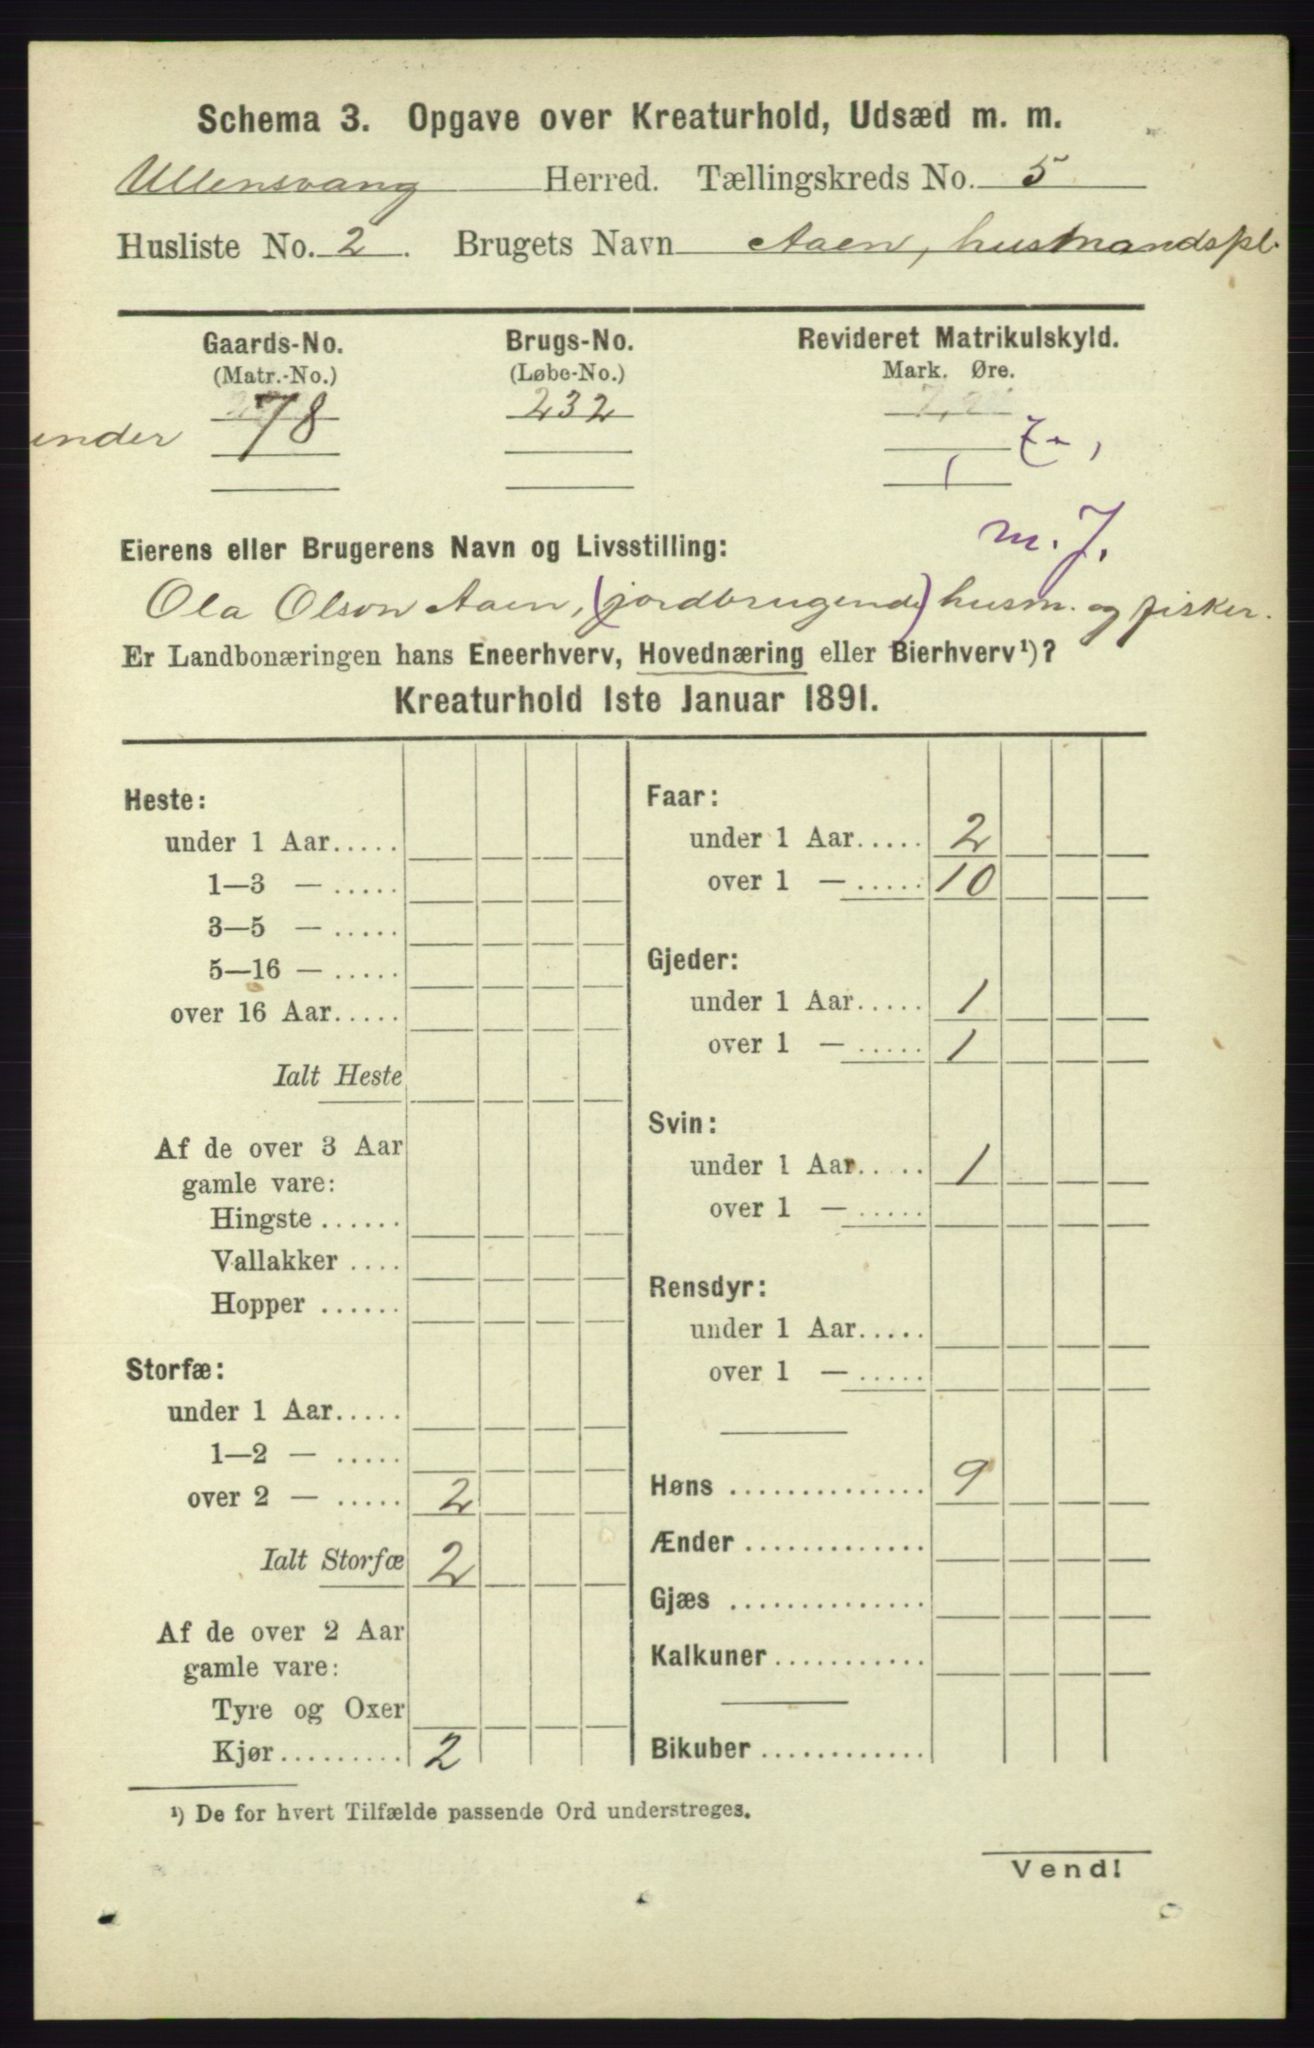 Schema 3. Opgave over Kreaturhold, Udsæd m. m.
Ullensvang Herred. Tællingskreds No. 5
Husliste No. 2. Brugets Navn Aaen, husmandspl.
Gaards-No. Brugs-No. Revideret Matrikulskyld.
(Matr.-No.) (Løbe-No.) Mark. Øre.
under 78 232
m. J.
Eierens eller Brugerens Navn og Livsstilling:
Ola Olson Aaen, (jordbrugende) husm. og fisker.
Er Landbonæringen hans Eneerhverv, Hovednæring eller Bierhverv¹)?
Kreaturhold 1ste Januar 1891.
Heste:
under 1 Aar.....
1—3 — .....
3—5 — .....
5—16 — .....
over 16 Aar.....
Ialt Heste
Af de over 3 Aar
gamle vare:
Hingste ......
Vallakker ....
Hopper ......
Storfæ:
under 1 Aar.....
1—2 — .....
over 2 — ..... 2
Ialt Storfæ 2
Af de over 2 Aar
gamle vare:
Tyre og Oxer
Kjør......... 2
Faar:
under 1 Aar..... 2
over 1 — ..... 10
Gjeder:
under 1 Aar..... 1
over 1 — ..... 1
Svin:
under 1 Aar..... 1
over 1 — .....
Rensdyr:
under 1 Aar.....
over 1 — .....
Høns .............. 9
Ænder .............
Gjæs ..............
Kalkuner ...........
Bikuber ............
¹) De for hvert Tilfælde passende Ord understreges.
Vend!